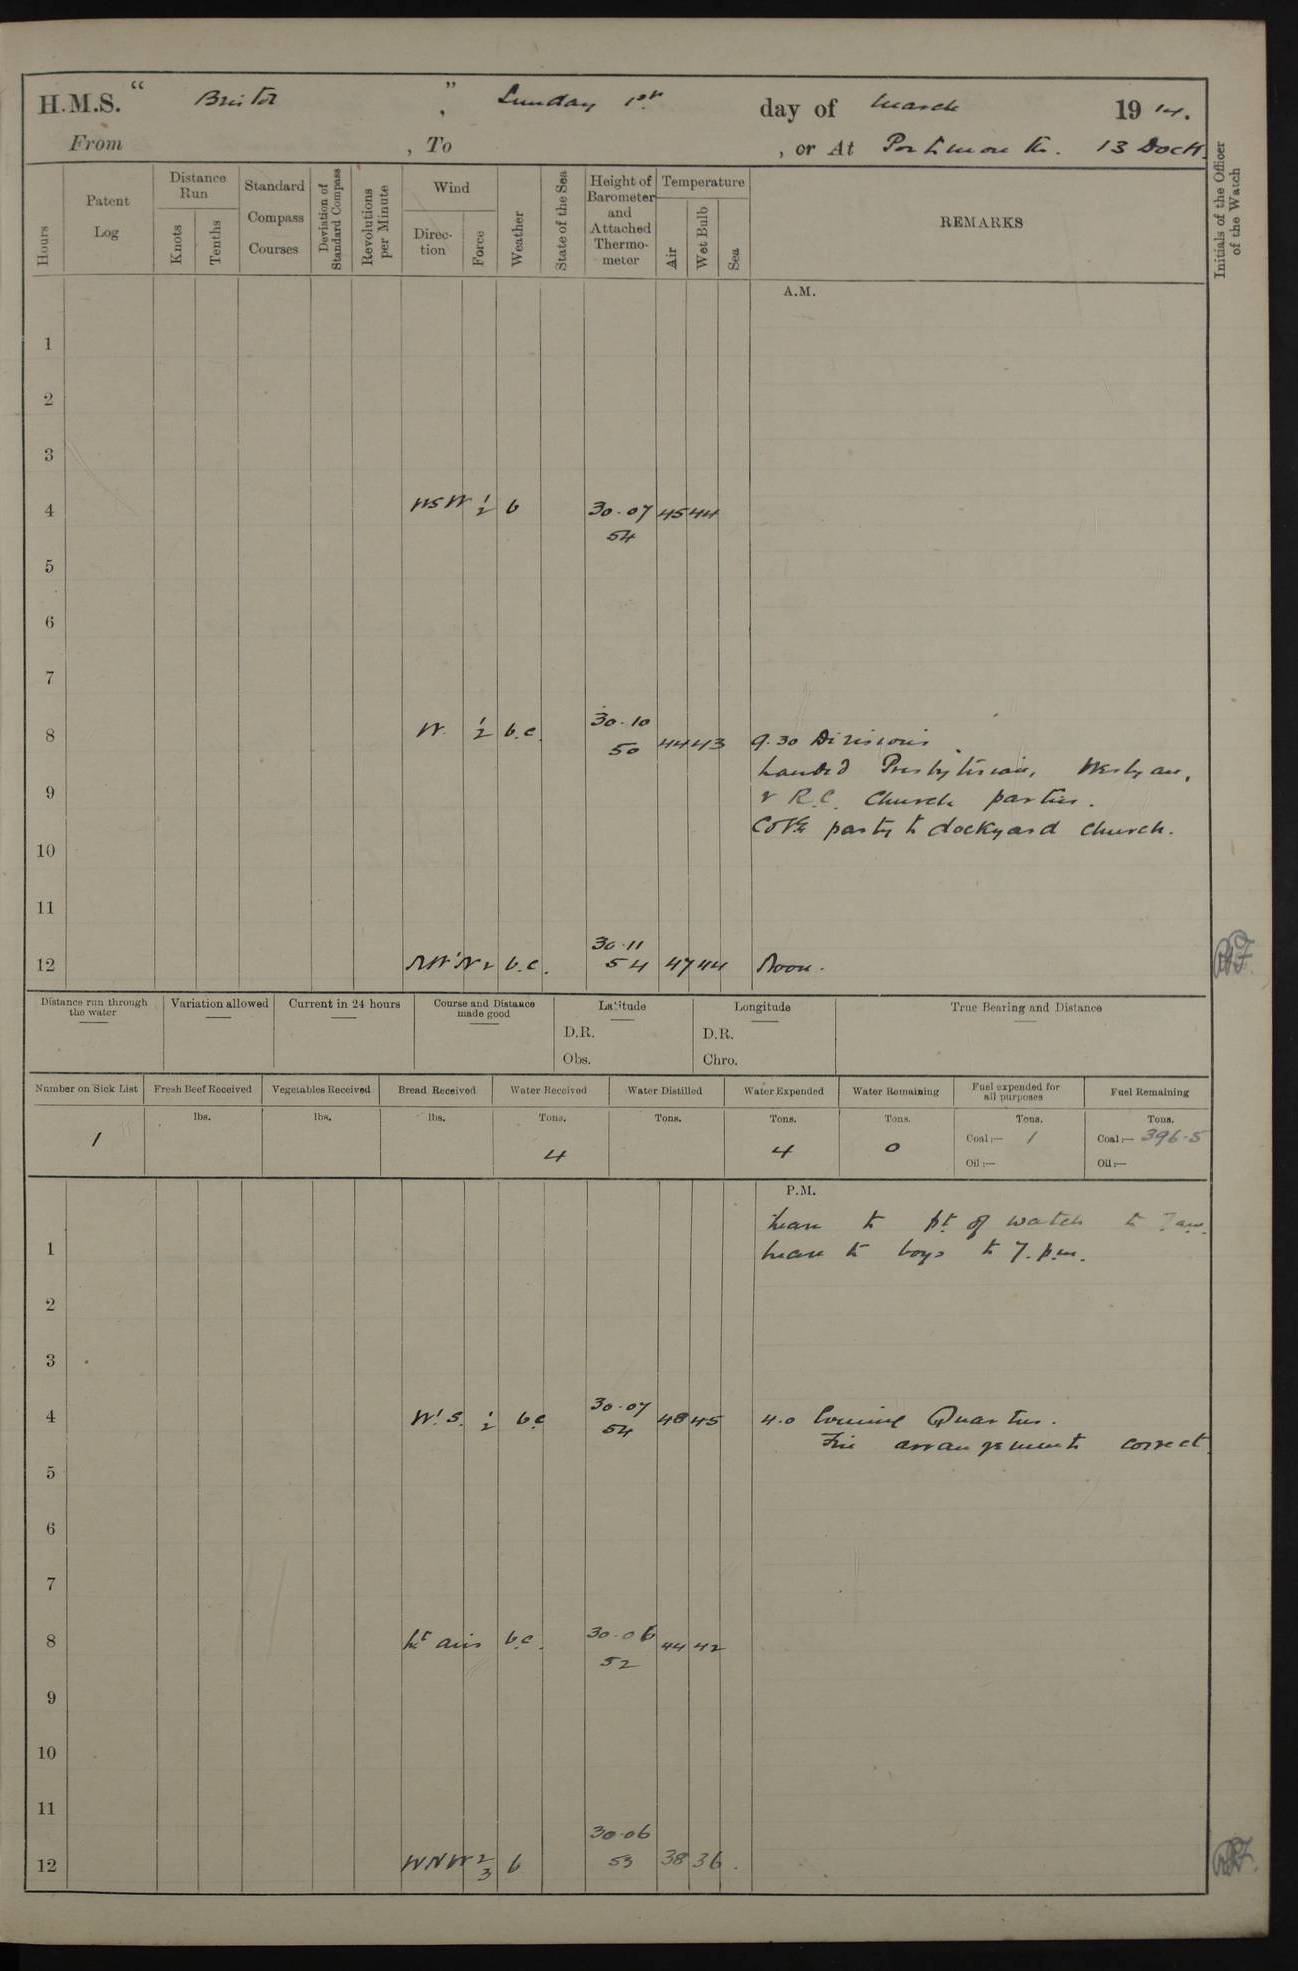 H.M.S. “ Bristol ” , Sunday 1st day of March 1914.
From , To , or At Portsmouth. 13 Dock.
Hours
Patent Log
Distance Run
Knots
Tenths
Standard Compass Courses
Deviation of Standard Compass
Revolutions per Minute
Wind
Direc-tion
Force
Weather
State of the Sea
Height of Barometer and Attached Thermo-meter
Temperature
Air
Wet Bulb
Sea
REMARKS
Initials of the Officer of the Watch
A.M.
1
2
3
4 WSW 1/2 b 30.07 45 44
54
5
6
7
8 W. 1/2 b.c. 30.10 44 43 9.30 Divisions
50
Landed Presbyterian, Wesleyan,
9
& R.C. Church parties.
CofE party to dockyard church.
10
11
12 NW'N 2 b.c. 30.11 47 44 Noon.
54
Distance run through the water
Variation allowed
Current in 24 hours
Course and Distance made good
Latitude
D.R.
Obs.
Longitude
D.R.
Chro.
True Bearing and Distance
Number on Sick List
Fresh Beef Received
Vegetables Received
Bread Received
Water Received
Water Distilled
Water Expended
Water Remaining
Fuel expended for all purposes
Fuel Remaining
lbs. lbs. lbs. Tons. Tons. Tons. Tons. Tons. Tons.
1 4 4 0 Coal:— 1 Coal:— 396.5
Oil:— Oil:—
P.M.
Leave to pt of watch to 7am.
1 Leave to boys to 7.pm.
2
3
4 W'S. 1/2 bc 30.07 48 45 4.0 Evening Quarters.
54
Fire arrangements correct.
5
6
7
8 Lt airs b.c. 30.06 44 42
52
9
10
11
12 WNW 2/3 b 30.06 38 36.
53